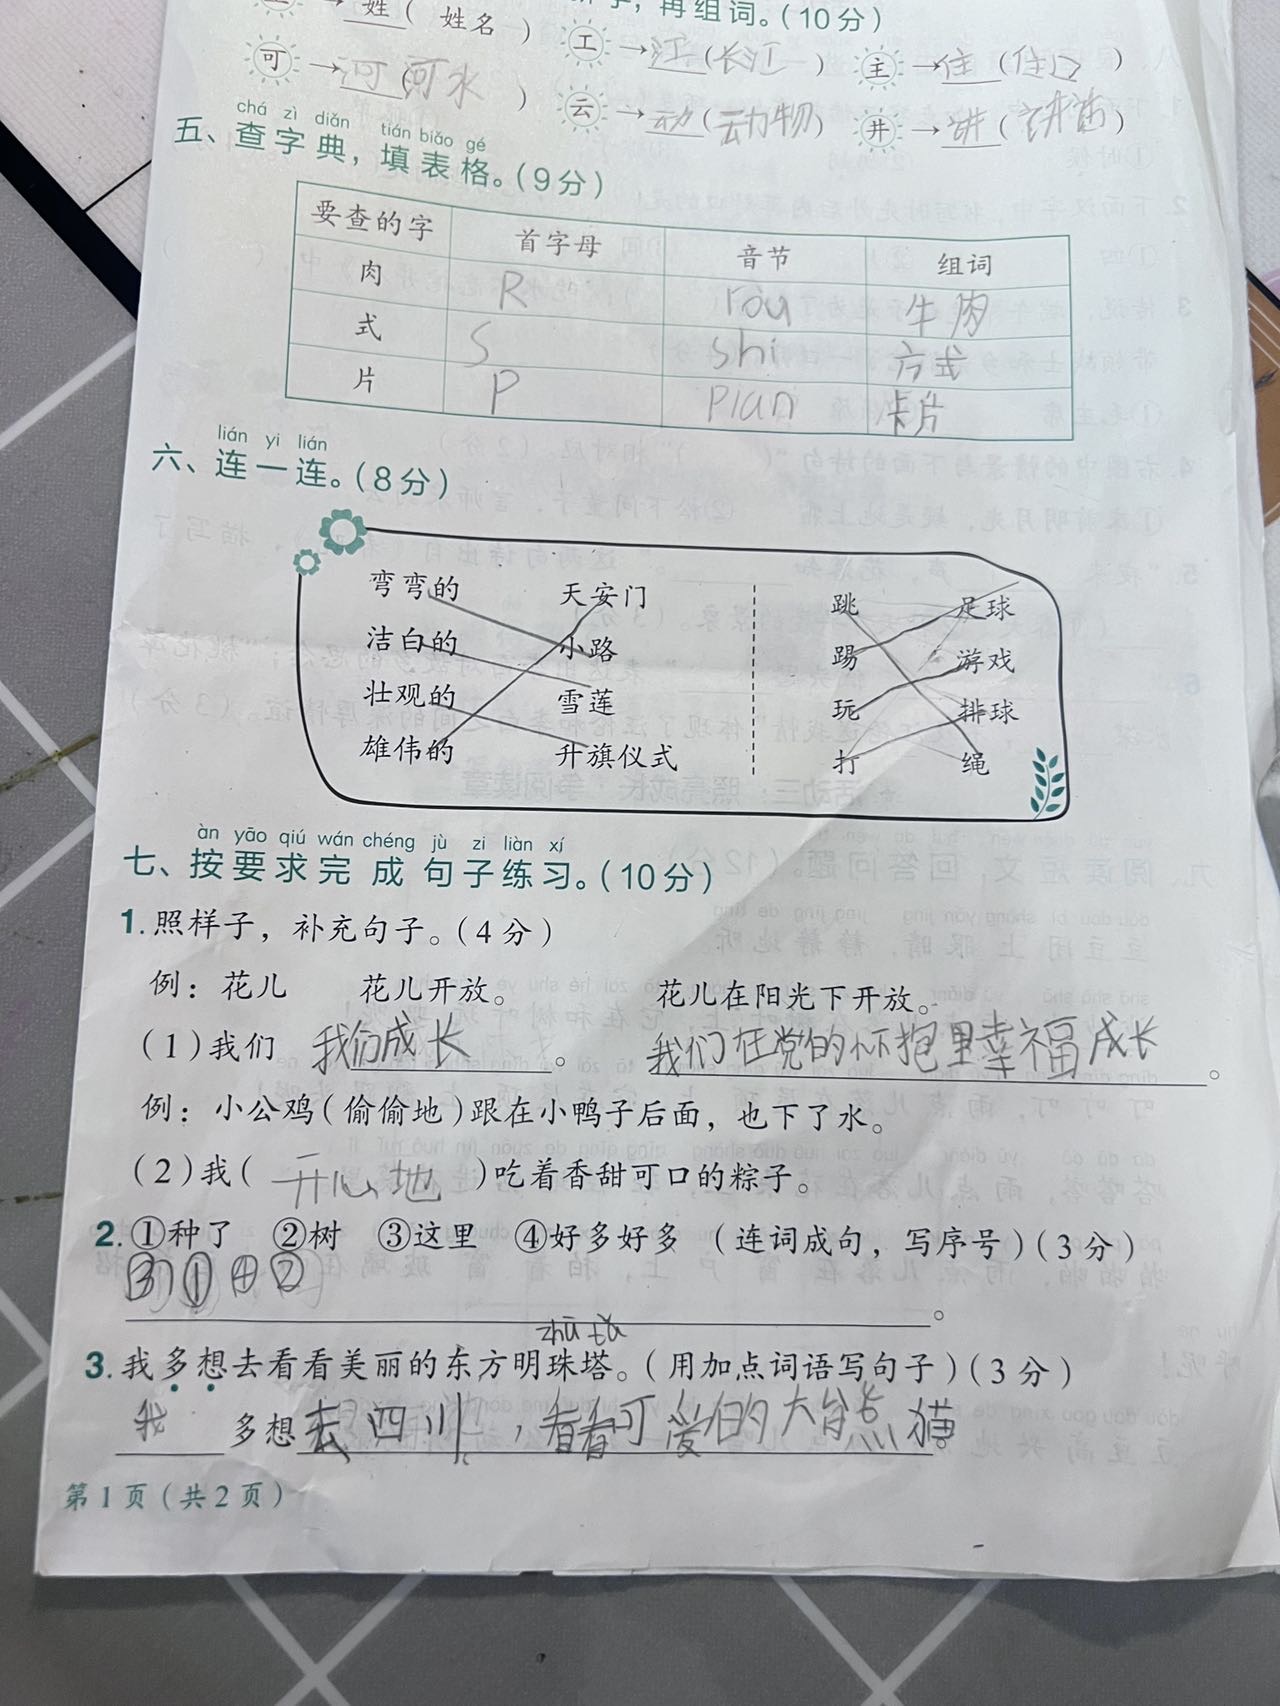 姓（姓名）
字，再组词。（10分）
可→河（河水）
工→江（长江）
主→住（住口）
云→动（动物）
井→讲（讲话）
chá zì diǎn tián biǎo gé
五、查字典，填表格。（9分）
要查的字 首字母 音节 组词
肉 R ròu 牛肉
式 S shì 方式
片 P pian 卡片
lián yi lián
六、连一连。（8分）
弯弯的 天安门 跳 足球
洁白的 小路 踢 游戏
壮观的 雪莲 玩 排球
雄伟的 升旗仪式 打 绳
àn yāo qiú wán chéng jù zi liàn xí
七、按要求完成句子练习。（10分）
1.照样子，补充句子。（4分）
例：花儿 花儿开放。 花儿在阳光下开放。
（1）我们 我们成长。 我们在党的怀抱里幸福成长。
例：小公鸡（偷偷地）跟在小鸭子后面，也下了水。
（2）我（开心地）吃着香甜可口的粽子。
2.①种了 ②树 ③这里 ④好多好多 （连词成句，写序号）（3分）
③①④②。
zhū tǎ
3.我多想去看看美丽的东方明珠塔。（用加点词语写句子）（3分）
我多想去四川，看看可爱的大熊猫。
第1页（共2页）